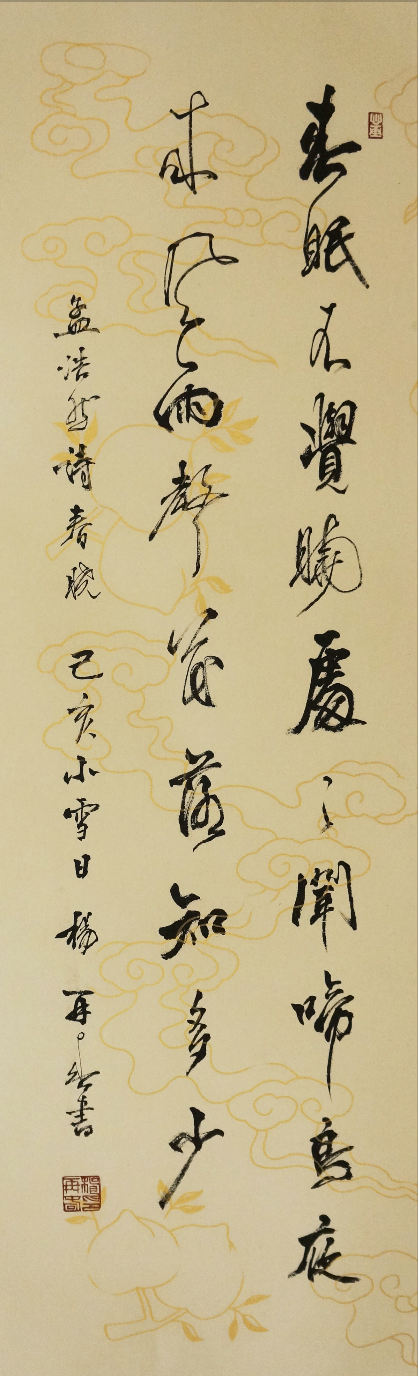 春眠不覺曉處々聞啼鳥夜
來風雨聲花落知多少
孟浩然詩春曉 己亥小雪日 楊再春書